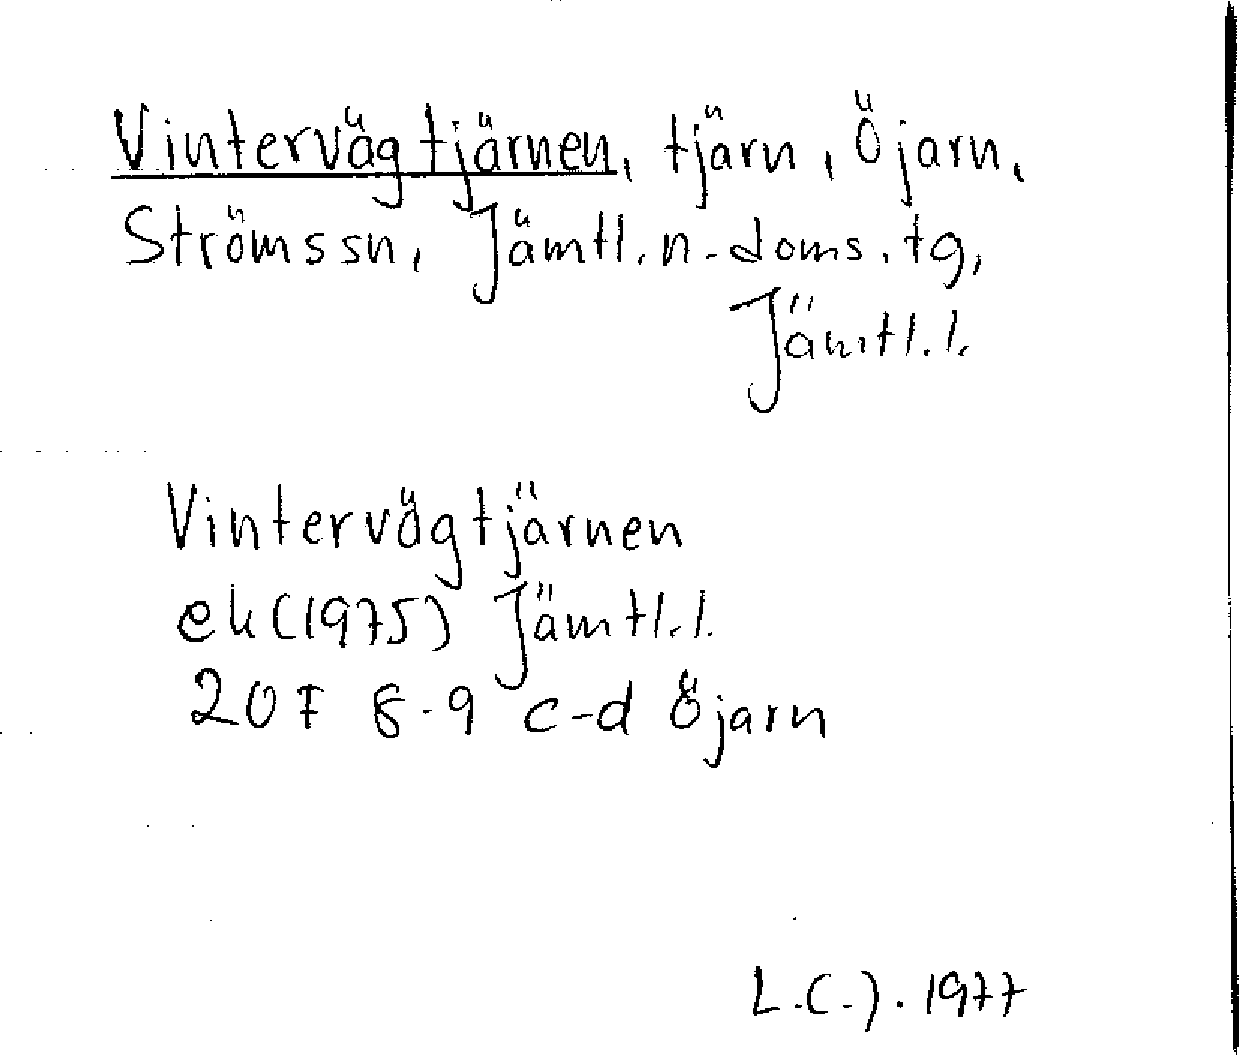 Vintervägtjärnen, tjärn, Öjarn,
Ströms sn, Jämtl. n. doms. tg,
Jämtl. l.
Vintervägtjärnen
ek (1975) Jämtl. l.
20F 8-9 c-d Öjarn
L.C.J. 1977